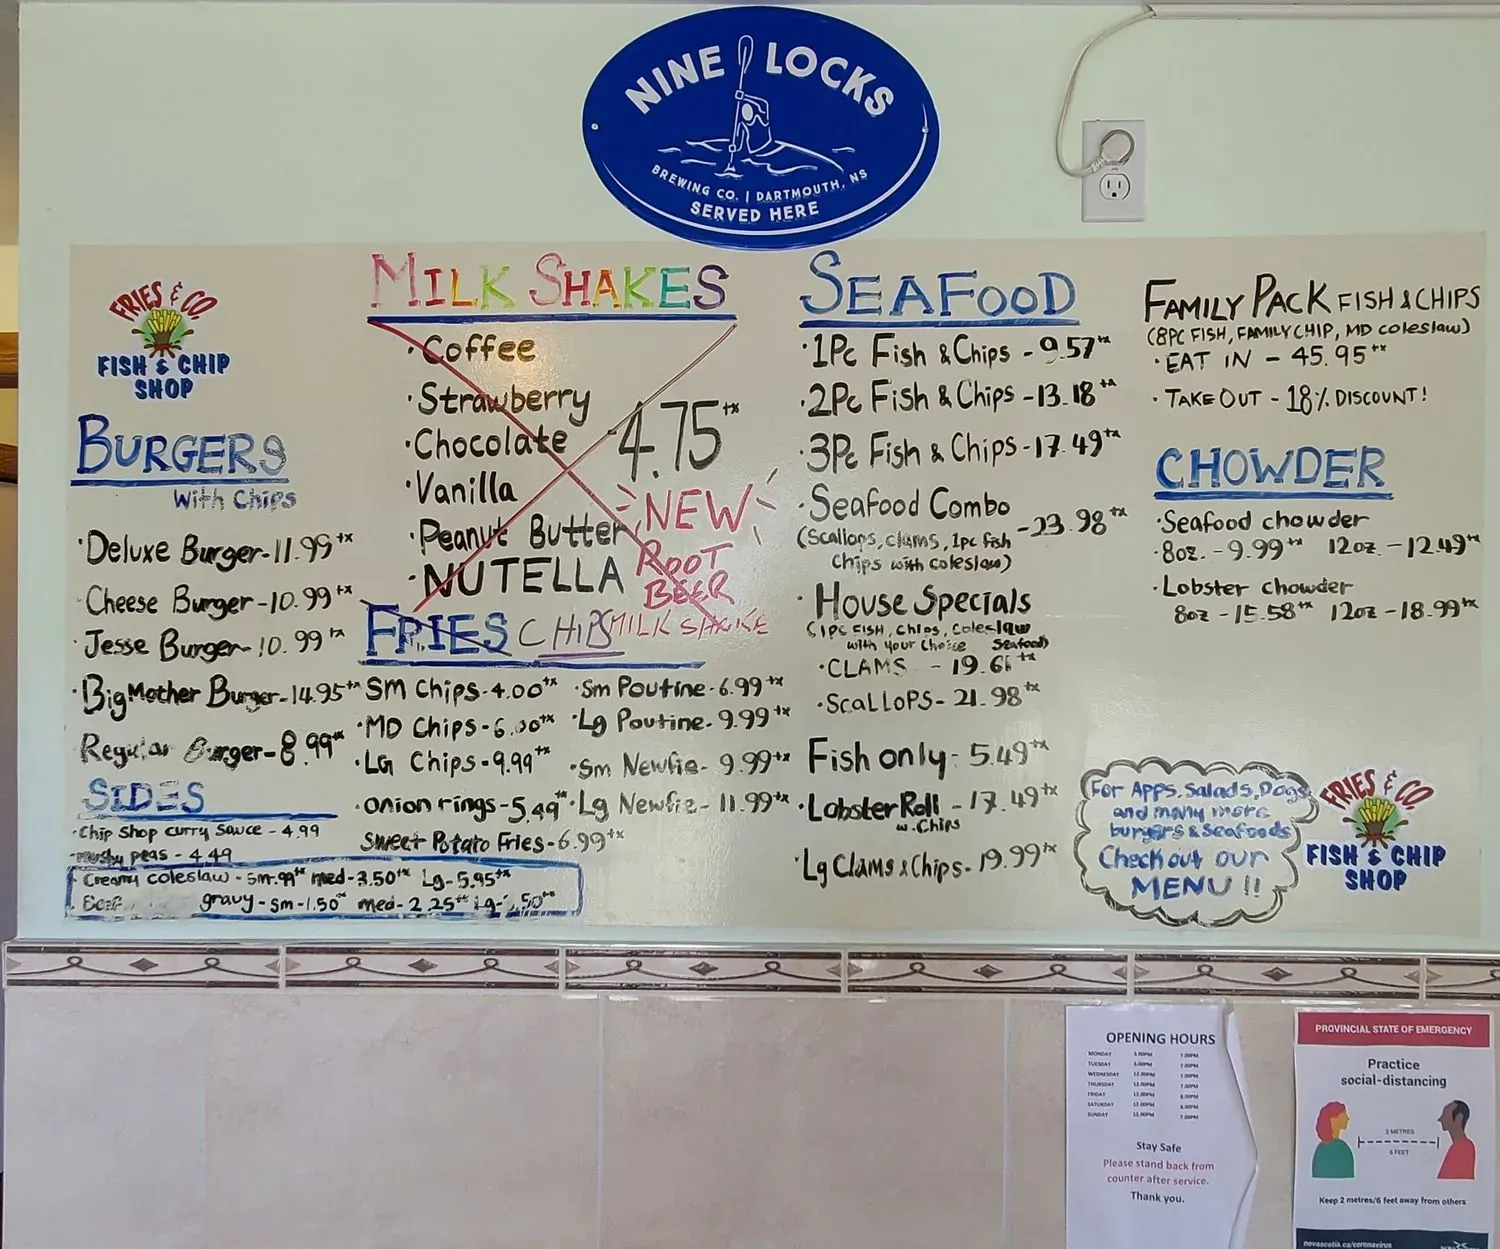 NINE LOCKS
BREWING CO. | DARTMOUTH, NS
SERVED HERE
FRIES & CO.
FISH & CHIP
SHOP
BURGERS
With Chips
·Deluxe Burger-11.99+x
·Cheese Burger-10.99+x
·Jesse Burger-10.99+x
·Big Mother Burger-14.95+x
Regular Burger-8.99+x
SIDES
·Chip Shop curry sauce - 4.99
·mushy peas - 4.49
·Creamy coleslaw - sm-.99+x med-3.50+x Lg-5.95+x
gravy-sm-1.50+x med-2.25+x Lg-
MILK SHAKES
·Coffee
·Strawberry
·Chocolate -4.75+x
·Vanilla
·Peanut Butter
·NUTELLA
NEW
ROOT
BEER
MILK SHAKE
FRIES CHIPS
SM Chips-4.00+x
·MD Chips-6.00+x
·LG Chips-9.99+x
·onion rings-5.49+x
Sweet Potato Fries-6.99+x
·Sm Poutine-6.99+x
·Lg Poutine-9.99+x
·Sm Newfie-9.99+x
·Lg Newfie-11.99+x
SEAFOOD
·1Pc Fish & Chips -9.57+x
·2Pc Fish & Chips -13.18+x
·3Pc Fish & Chips -17.49+x
·Seafood Combo -23.98+x
(Scallops, clams, 1pc fish
Chips with coleslaw)
·House Specials
(1PC FISH, Chips, Coleslaw
with your Choice Seafood)
·CLAMS - 19.66+x
·SCALLOPS- 21.98+x
Fish only- 5.49+x
·Lobster Roll - 17.49+x
w. Chips
·Lg Clams & Chips- 19.99+x
FAMILY PACK FISH & CHIPS
(8PC FISH, FAMILY CHIP, MD coleslaw)
·EAT IN - 45.95+x
·TAKE OUT - 18% DISCOUNT!
CHOWDER
·Seafood chowder
·8oz. - 9.99+x 12oz. - 12.49+x
·Lobster chowder
8oz -15.58+x 12oz -18.99+x
For Apps, Salads, Dogs,
and many more
burgers & Seafoods
Check out our
MENU !!
FRIES & CO.
FISH & CHIP
SHOP
OPENING HOURS
MONDAY 3.00PM 7.00PM
TUESDAY 3.00PM 7.00PM
WEDNESDAY 12.00PM 7.00PM
THURSDAY 12.00PM 7.00PM
FRIDAY 12.00PM 8.00PM
SATURDAY 12.00PM 8.00PM
SUNDAY 12.00PM 7.00PM
Stay Safe
Please stand back from
counter after service.
Thank you.
PROVINCIAL STATE OF EMERGENCY
Practice
social-distancing
2 METRES
6 FEET
Keep 2 metres/6 feet away from others
novascotia.ca/coronavirus